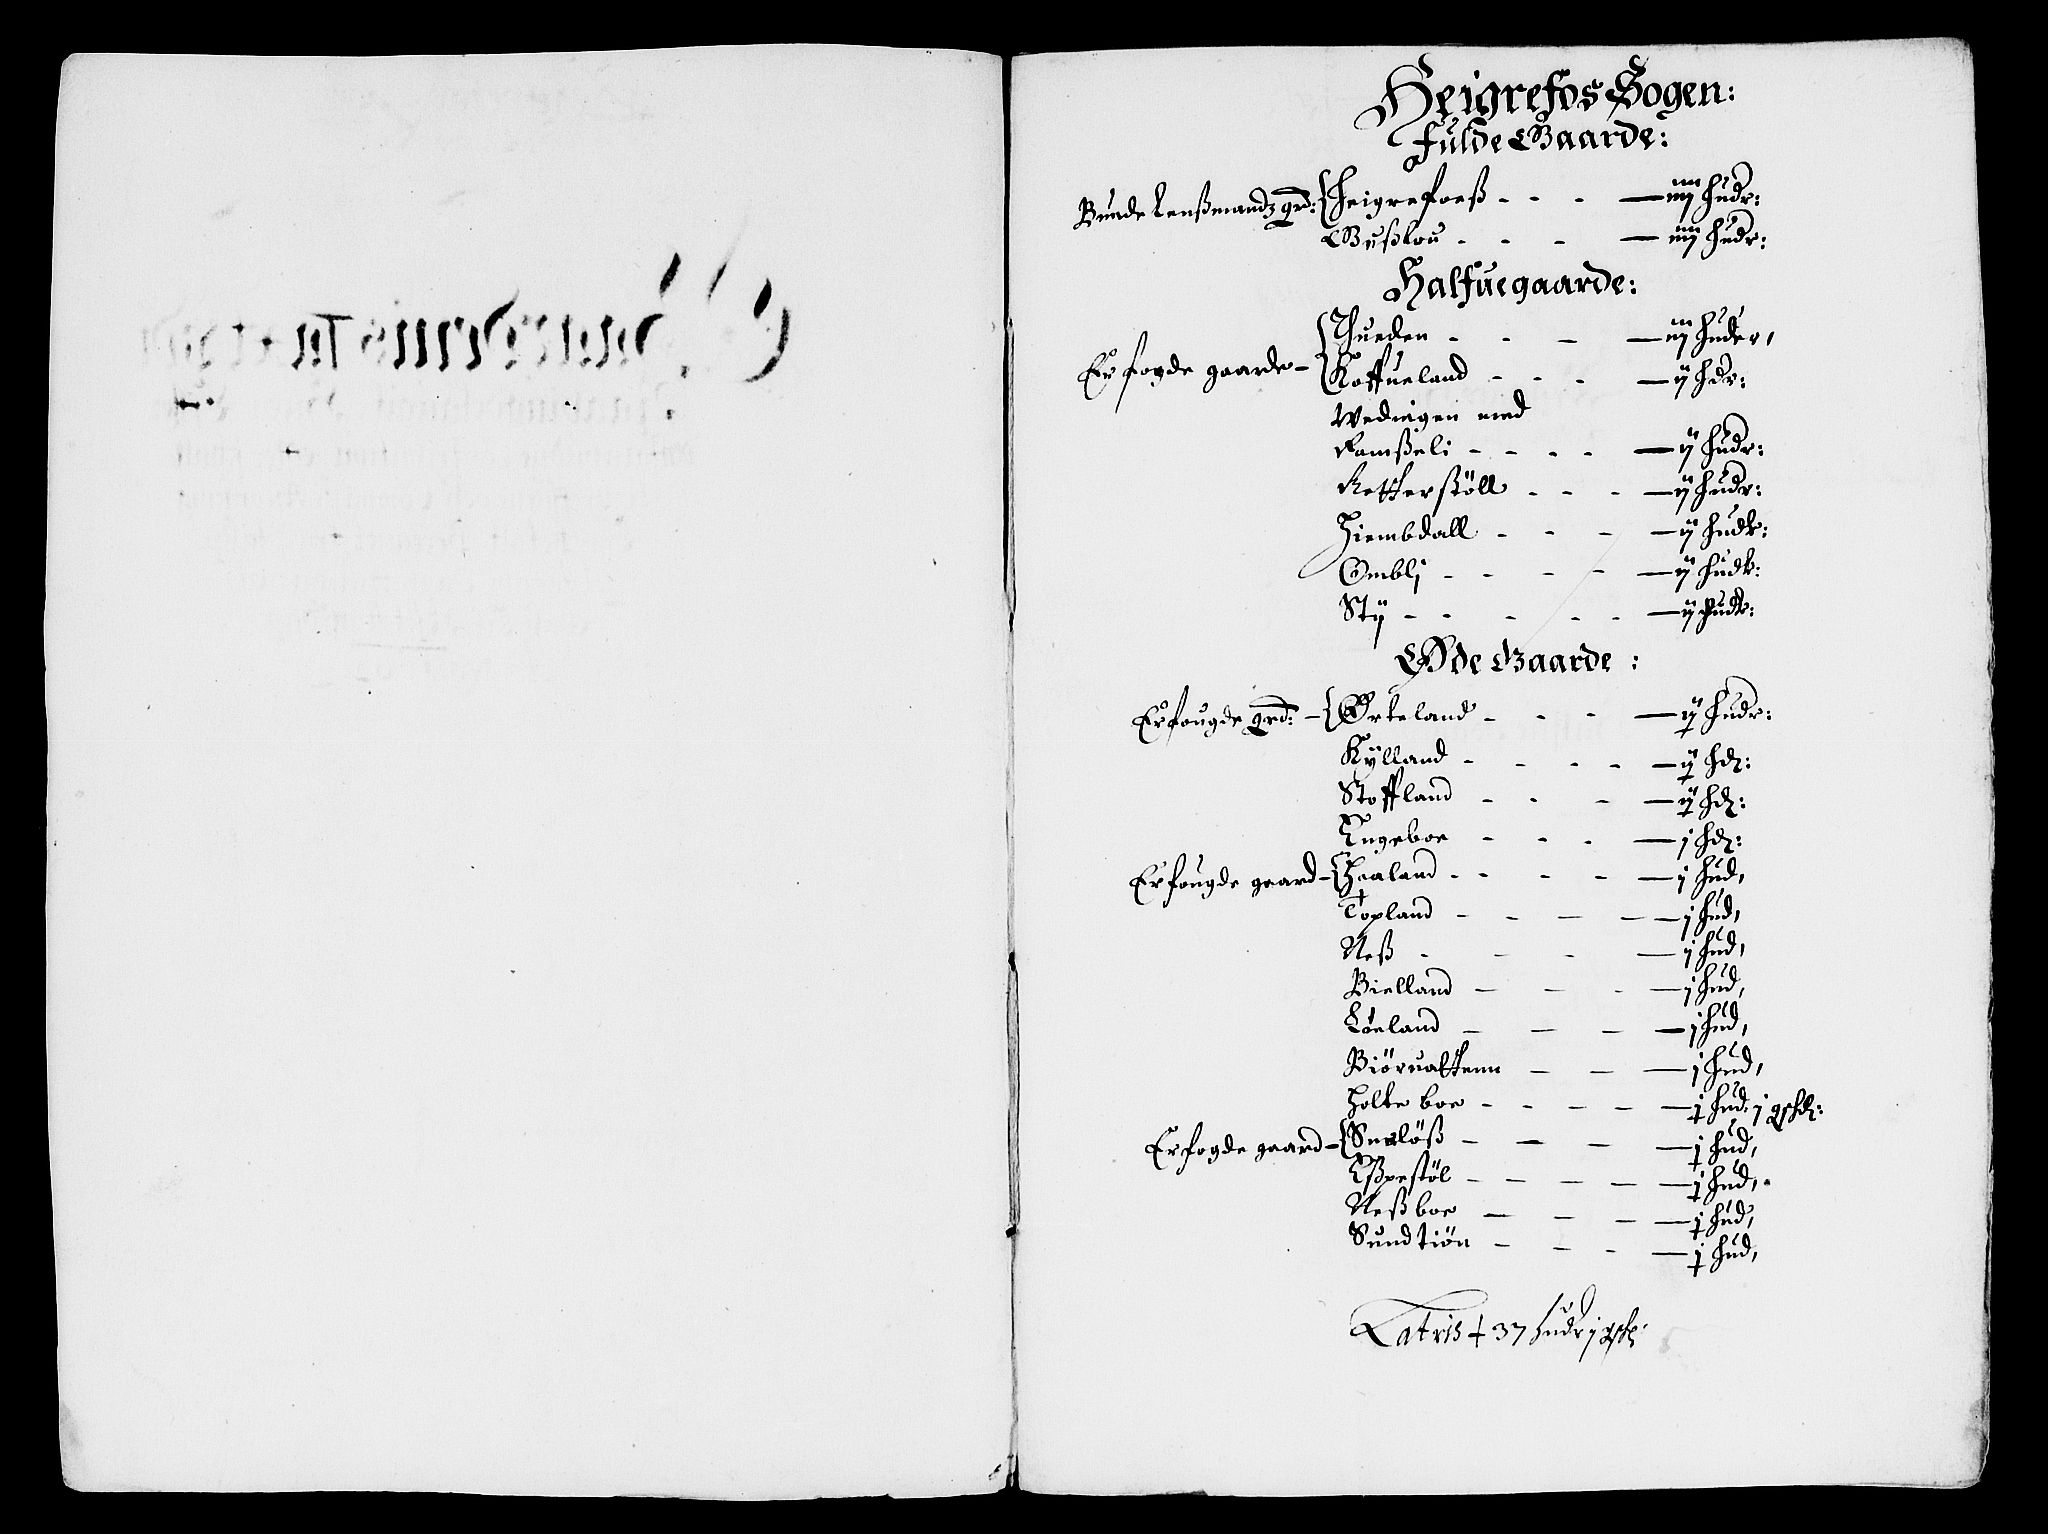 Heigrefos Sogen:
Fulde Gaarde:
Bunde Lenßmandz grd: Heigrefoeß - - - — iiij hudr:
Gußlou - - - — iiij hudr:
Halfue gaarde:
Thueden - - - — iij huder,
Er fogde gaarde - Koffueland - - - — ij hdr:
Wedingen med
Ramßeli - - - - — ij hudr:
Retterstöll - - - — ij hudr:
Hiembdall - - - — ij hudr:
Ombli - - - - — ij hudr:
Stÿ - - - - - — ij hudr:
Øde Gaarde:
Er fougde grd: - Ørteland - - - — ij hudr:
Kylland - - - - — ij hdr:
Stoffland - - - — ij hdr:
Engeboe - - - — j hdr:
Er fougde gaard - Healand - - - - — j hud,
Topland - - - - — j hud,
Neß - - - — j hud,
Bielland - - - — j hud,
Löeland - - - — j hud,
Biöruatten - - — j hud,
Holte boe - - - - — j hud: j
Er fogde gaard - Snelöß - - - — j hud,
Eßpestöl - - - - — j hud,
Neß boe - - - — j hud,
Sundtiön - - - — j hud,
Latris 37 hudr j